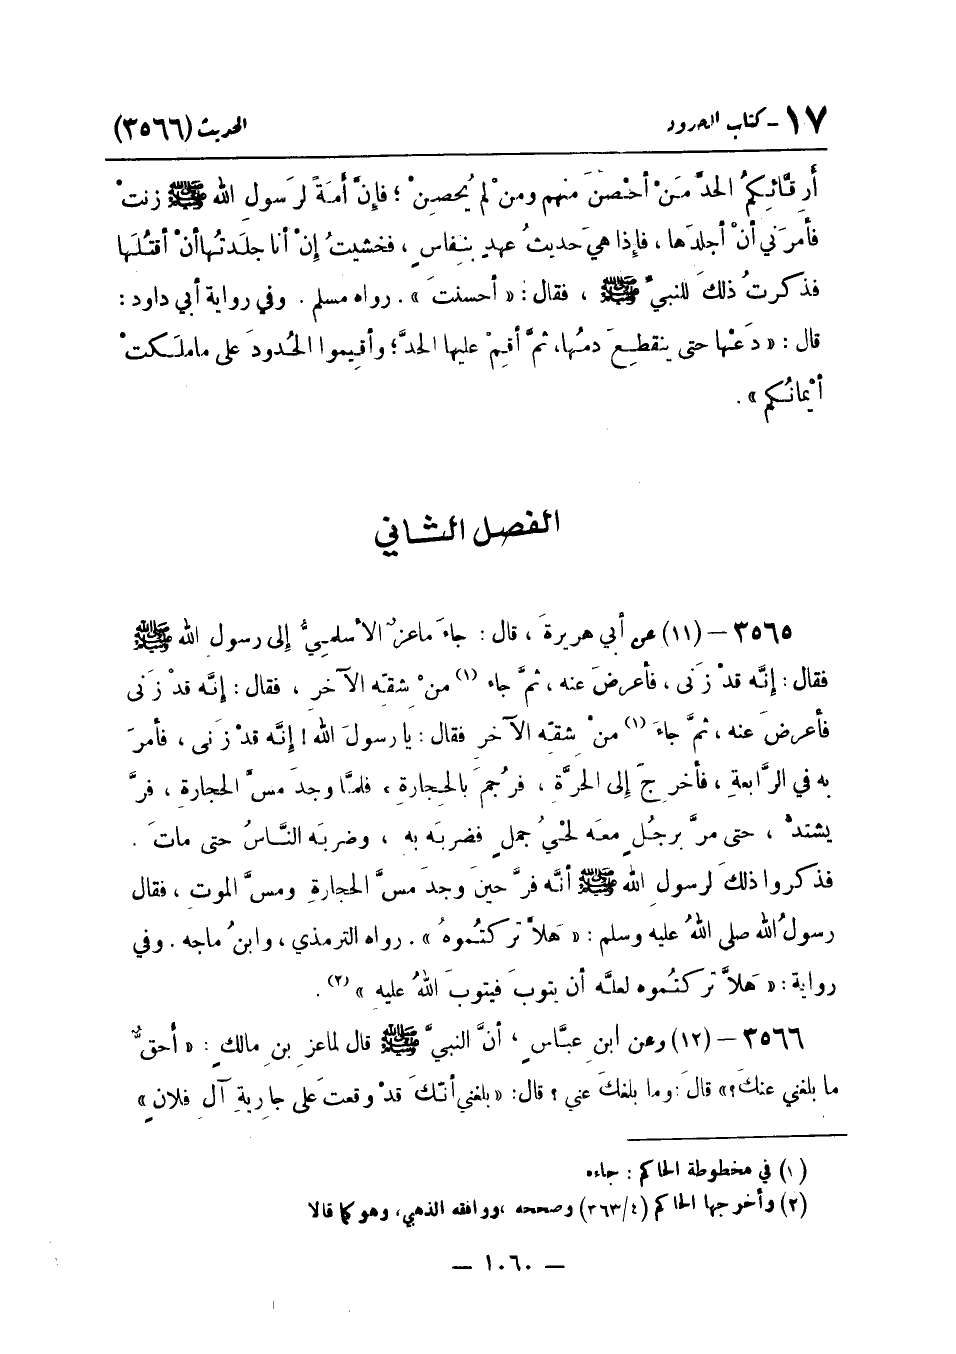 ١٧ - كتاب الحدود الحديث (٣٥٦٦)
أرقَّائِكُمُ الحدَّ مَنْ أحْصَنَ منهم ومنْ لم يُحصِنْ؛ فإنَّ أمَةً لرَسولِ الله ﷺ زنتْ
فأمرَني أنْ أجلدَها، فإذا هيَ حديثُ عهدٍ بنِفاسٍ، فخشيتُ إنْ أنا جلَدتُها أنْ أقتُلَها
فذكرتُ ذلكَ للنبيِّ ﷺ، فقال: «أحسنتَ». رواه مسلم. وفي رواية أبي داود:
قال: «دَعْها حتى ينقطِعَ دمُها، ثمَّ أقِمْ عليها الحدَّ؛ وأقيموا الحُدودَ على ما ملَكتْ
أيْمانُكم».
الفصل الثاني
٣٥٦٥ - (١١) عن أبي هريرةَ، قال: جاءَ ماعزٌ الأسلميُّ إلى رسولِ الله ﷺ
فقال: إنَّه قدْ زَنى، فأعرضَ عنه، ثمَّ جاء (١) منْ شقِّه الآخرِ، فقال: إنَّه قدْ زَنى
فأعرضَ عنه، ثمَّ جاءَ (١) منْ شِقِّه الآخرِ فقال: يا رسولَ الله! إنَّه قدْ زَنى، فأمرَ
به في الرَّابعةِ، فأخرِجَ إلى الحرَّةِ، فرُجمَ بالحِجارةِ، فلمَّا وجدَ مسَّ الحجارةِ، فرَّ
يشتدُّ، حتى مرَّ برجُلٍ معَه لحْيُ جملٍ فضربَه به، وضربَه النَّاسُ حتى ماتَ.
فذكروا ذلكَ لرسولِ الله ﷺ أنَّه فرَّ حينَ وجدَ مسَّ الحجارةِ ومسَّ الموتِ، فقال
رسولُ الله صلى اللهُ عليه وسلم: «هَلاَّ تركتُموهُ». رواه الترمذي، وابنُ ماجه. وفي
رواية: «هَلاَّ تركتُموه لعلَّه أن يتوبَ فيتوبَ اللهُ عليه» (٢).
٣٥٦٦ - (١٢) وعن ابنِ عبَّاسٍ، أنَّ النبيَّ ﷺ قال لماعزِ بنِ مالكٍ: «أحقٌّ
ما بلغني عنكَ؟» قالَ: وما بلغكَ عني؟ قال: «بلغني أنَّكَ قدْ وقعتَ على جاريةِ آلِ فلانٍ»
(١) في مخطوطة الحاكم: جاءه
(٢) وأخرجها الحاكم (٣٦٣/٤) وصححه، ووافقه الذهبي، وهو كما قالا
— ١٠٦٠ —